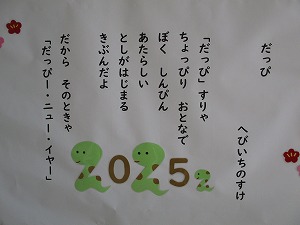 だっぴ
へびいちのすけ
「だっぴ」すりゃ
ちょっぴり おとなで
ぼく しんぴん
あたらしい
としがはじまる
きぶんだよ
だから そのときゃ
「だっぴー・ニュー・イヤー」
2025